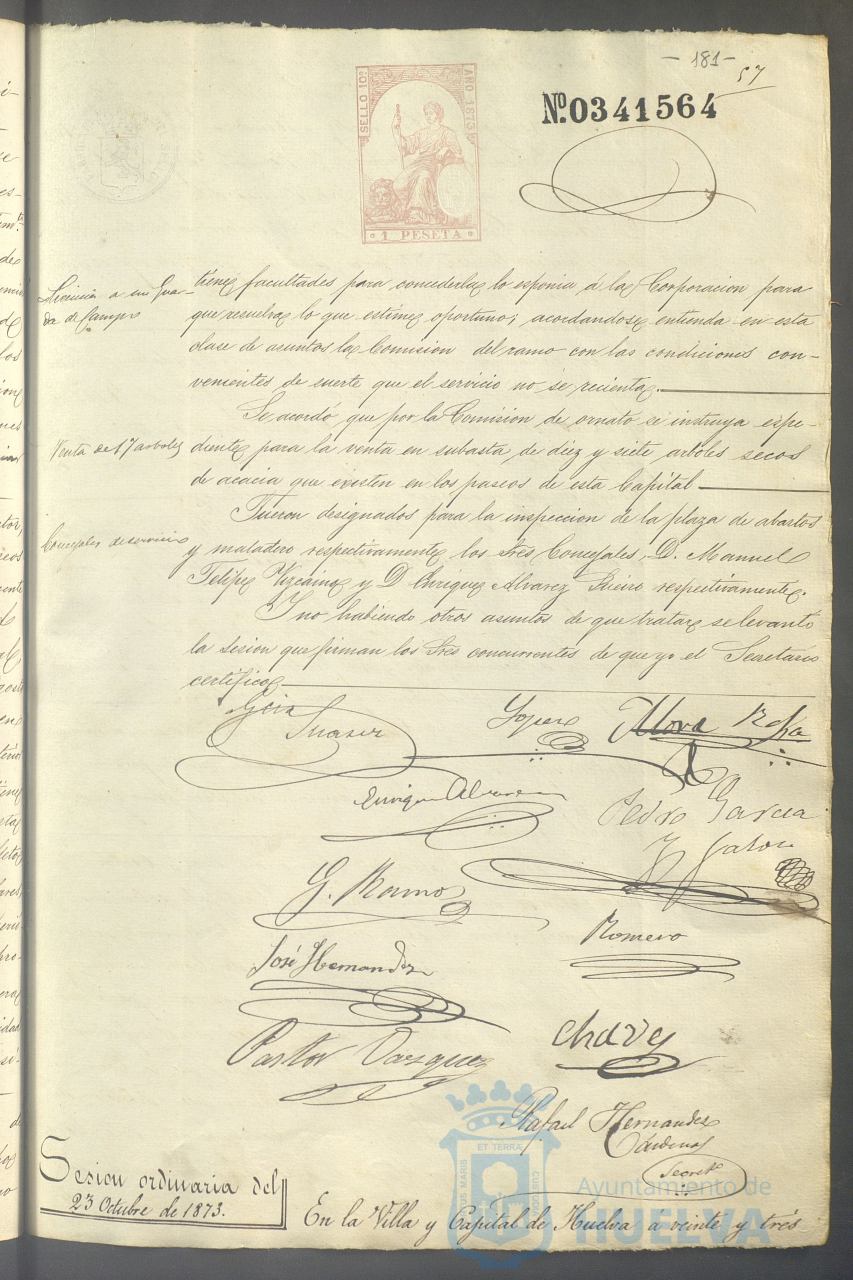 - 181 -
57
SELLO 10º
AÑO 1873
1 PESETA
Nº 0341564
Licencia a un Guarda de Campo
tiene facultades para concederla lo esponia á la Corporacion para
que resuelva lo que estime oportuno; acordandose entienda en esta
clase de asuntos la Comision del ramo con las condiciones con-
venientes de suerte que el servicio no se recienta.
Venta de 17 arboles
Se acordó que por la Comision de ornato se instruya espe-
diente para la venta en subasta de diez y siete arboles secos
de acacia que existen en los paseos de esta Capital
Concejales de servicio
Fueron designados para la inspeccion de la plaza de abastos
y matadero respectivamente los Sres Concejales, D. Manuel
Felipe Vizcaino y D Enrique Alvarez Sueiro respectivamente.
Y no habiendo otros asuntos de que tratar se levantó
la sesion que firman los Sres concurrentes de que yo el Secretario
certifico
Suarez
Lopez
Mora
Enrique Alvarez
Pedro Garcia
y
G. Ramos
Romero
José Hernandez
Chavez
Pastor Vazquez
Rafael Hernandez
Cardenas
Secretº
Sesion ordinaria del
23 Octubre de 1873.
En la Villa y Capital de Huelva a veinte y trés
Ayuntamiento de
HUELVA